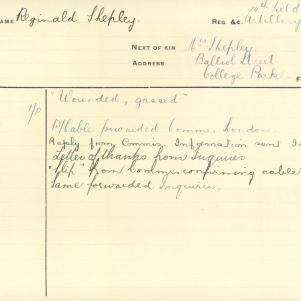 14th Field
NAME Reginald Shepley REG &C. Artillery
NEXT OF KIN Mrs Shepley.
ADDRESS Balliol Street
College Park
F
1/P "Wounded, gassed"
B/Cable forwarded Commr London.
Reply from Commr. Information sent In
Letter of thanks from Inquirer
"Slip" from Commr confirming cable
Same forwarded Inquirer.